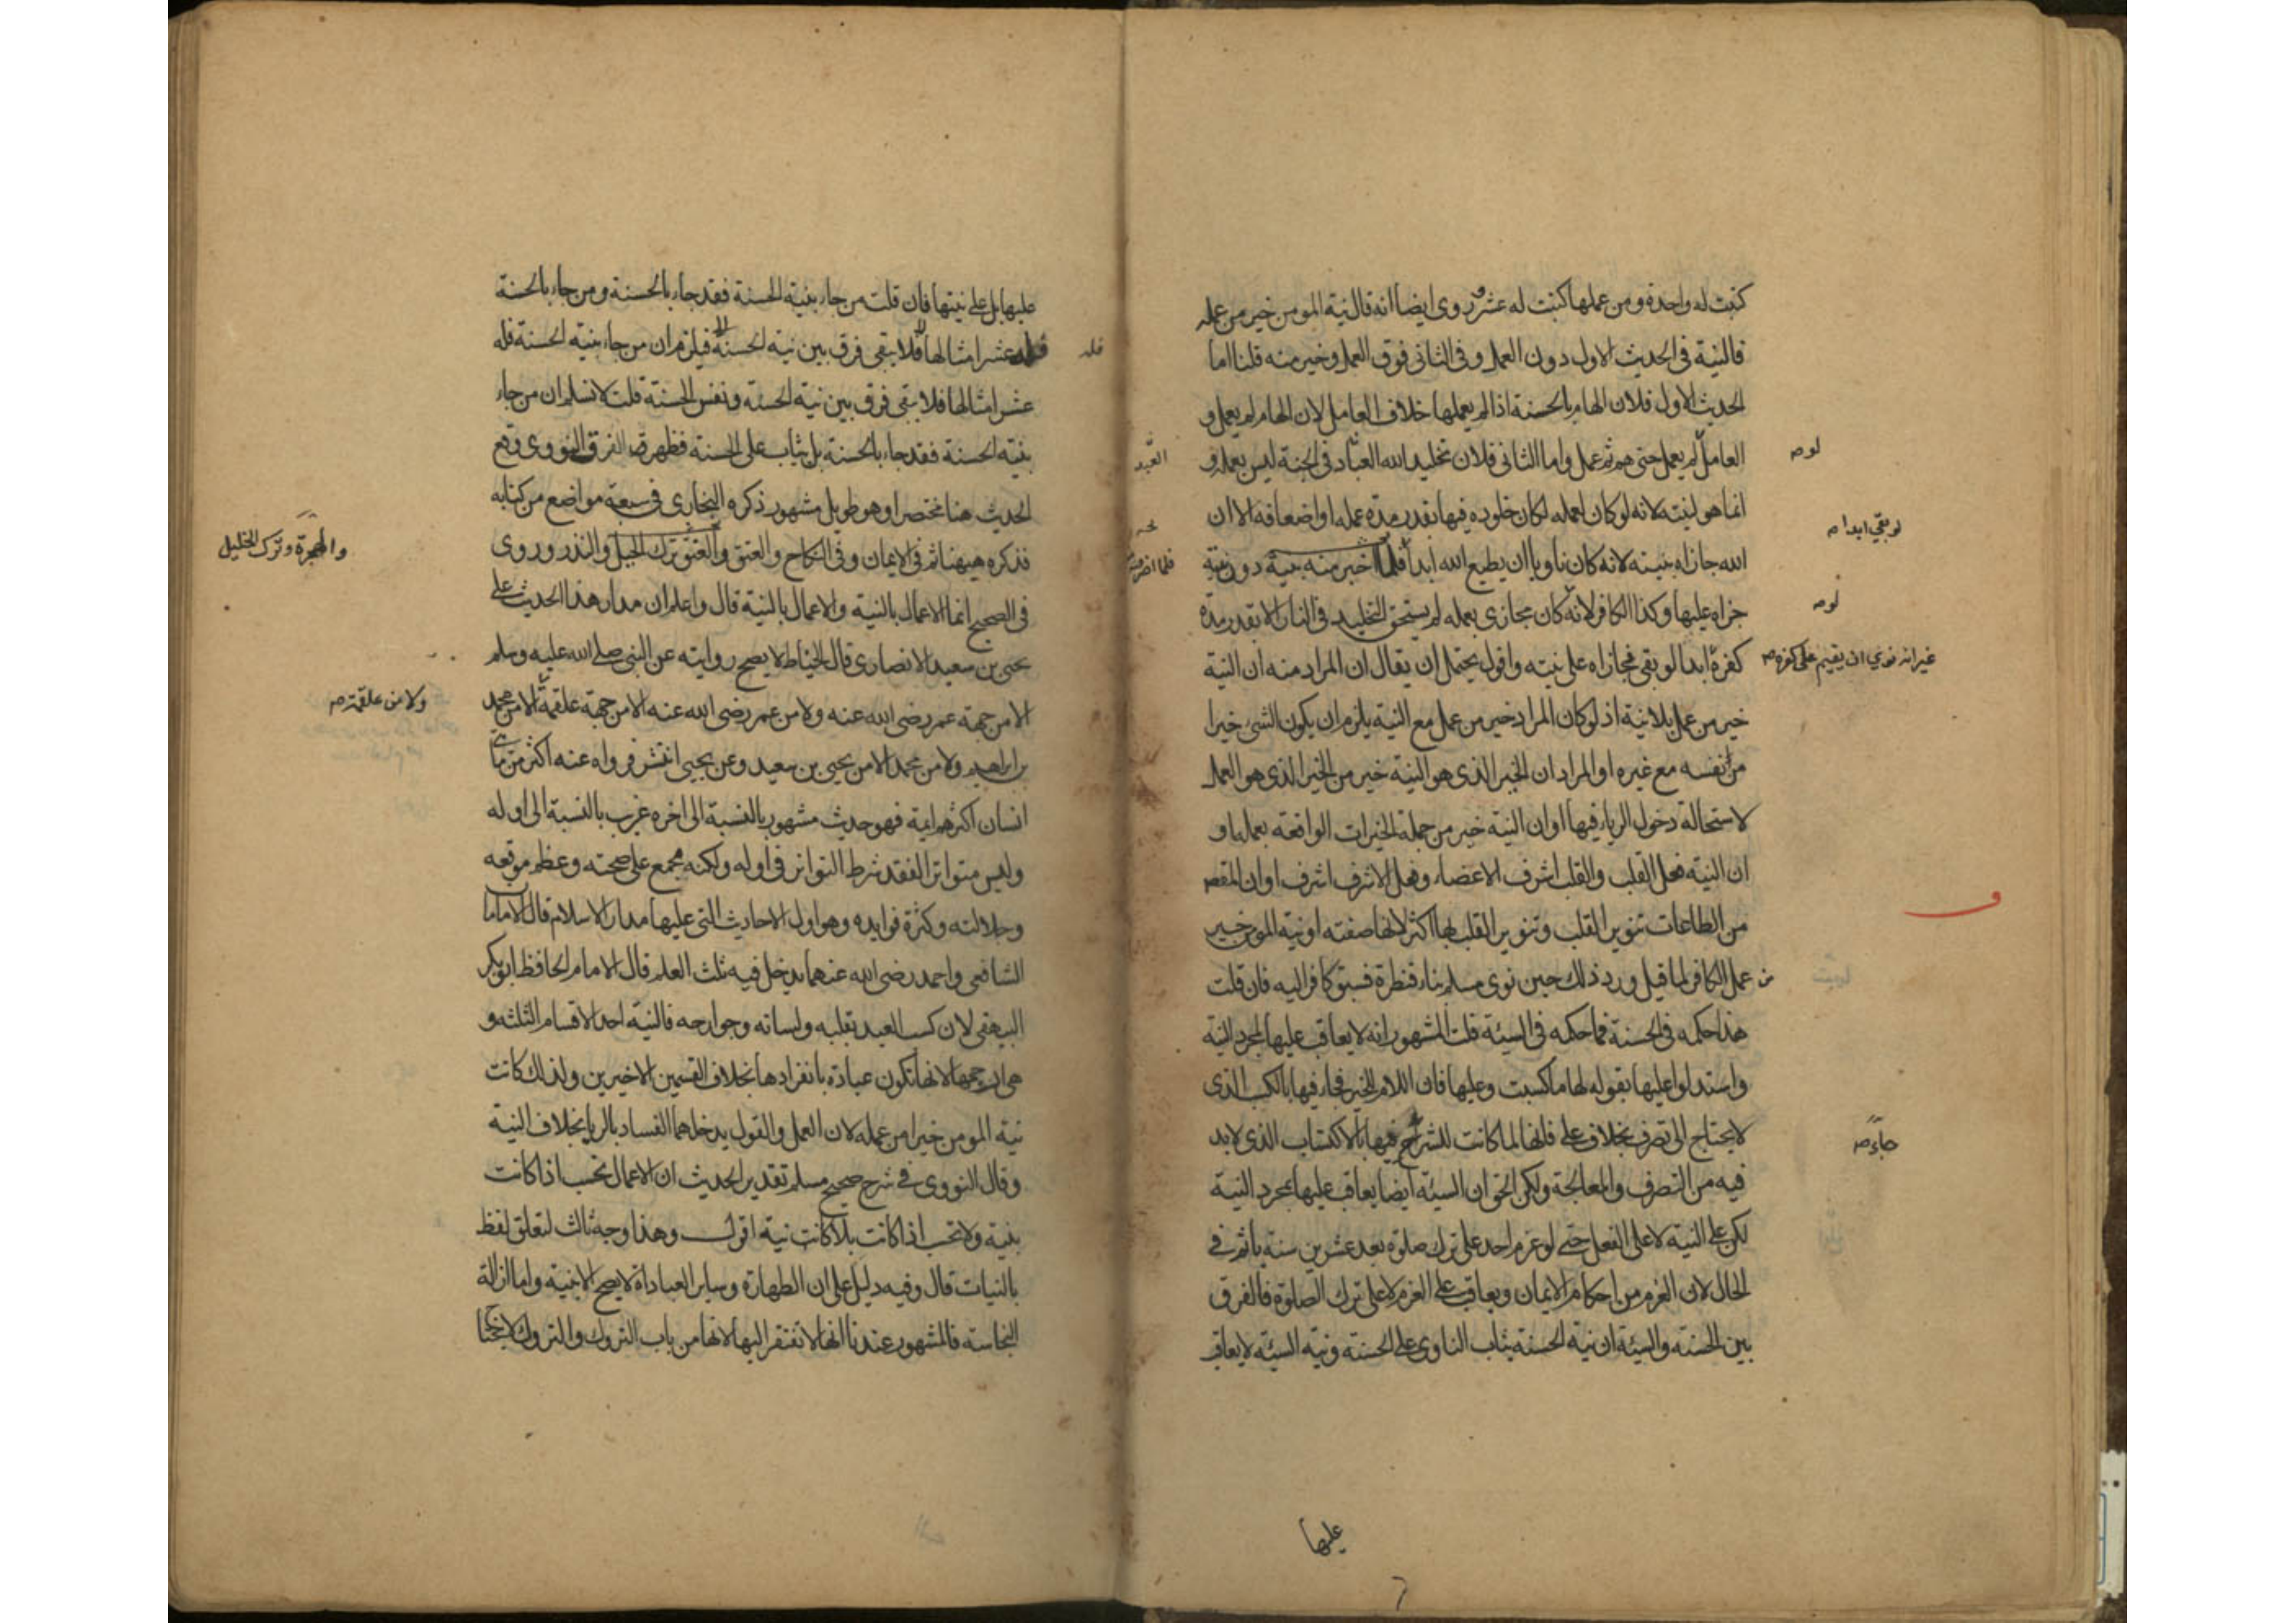 كتبت له واحدة ومن عملها كتبت له عشر وروى ايضا انه قال نية المومن خير من عمله
فالنية في الحديث الاول دون العمل وفي الثاني فوق العمل وخير منه قلنا اما
الحديث الاول فلان الهام بالحسنة اذا لم يعملها خلاف العامل لان الهام لم يعمل و
العامل لم يعمل حتى هم ثم عمل واما الثاني فلان تخليد الله العباد في الجنة ليس بعمله و
انما هو لنيته لانه لو كان لعمله لكان خلوده فيها بقدر مدة عمله او اضعافه الا ان
الله جازاه بنيته لانه كان ناويا ان يطيع الله ابدا فلما اخبر منه بنية دون نيته
جزاه عليها وكذا الكافر لانه كان يجازى بعمله لم يستحق التخليد في النار الا بقدر مدة
كفره ابدا لو بقى فجازاه على نيته واقول يحتمل ان يقال ان المراد منه ان النية
خير من عمل بلا نية اذ لو كان المراد خير من عمل مع النية يلزم ان يكون الشئ خيرا
من نفسه مع غيره او المراد ان الخير الذى هو النية خير من الخير الذى هو العمل
لاستحالة دخول الرياء فيها او ان النية خير من جملة الخيرات الواقعة بعمله او
ان النية فعل القلب والقلب اشرف الاعضاء وفعل الاشرف اشرف او ان المقصد
من الطاعات تنوير القلب وتنوير القلب بها اكثر لانها صفته او نية المومن خير
من عمل الكافر لما قيل ورد ذلك حين نوى مسلم بناء قنطرة فسبق كافر اليه فان قلت
هذا حكمه في الحسنة فما حكمه في السيئة قلت المشهور انه لا يعاقب عليها بمجرد النية
واستدلوا عليها بقوله لها ما كسبت وعليها فان اللام للخير فجاء فيها بالكسب الذى
لا يحتاج الى تصرف بخلاف على فانها لما كانت للشر جاء فيها بالاكتساب الذى لا بد
فيه من التصرف والمعالجة ولكن الحق ان السيئة ايضا يعاقب عليها بمجرد النية
لكن على النية لا على الفعل حتى لو عزم احد على ترك صلوة بعد عشرين سنة ياثم في
الحال لان العزم من احكام الايمان ويعاقب على العزم لا على ترك الصلوة فالفرق
بين الحسنة والسيئة ان نية الحسنة يثاب الناوى على الحسنة ونية السيئة لا يعاقب
العبد
لو صـ
لو بقي ابدا صـ
لو صـ
غير انه نوى ان يقيم على كفره صـ
جاء صـ
عليها
عليها بل على نيتها فان قلت من جاء بنية الحسنة فقد جاء بالحسنة ومن جاء بالحسنة
فله عشر امثالها فلا يبقى فرق بين نية الحسنة فيلزم ان من جاء بنية الحسنة فله
عشر امثالها فلا يبقى فرق بين نية الحسنة ونفس الحسنة قلت لا نسلم ان من جاء
بنية الحسنة فقد جاء بالحسنة بل يثاب على الحسنة فظهر الفرق النووى وقع
الحديث هنا مختصرا وهو طويل مشهور ذكره البخارى في سبعة مواضع من كتابه
فذكره ههنا ثم في الايمان وفي النكاح والعتق والعتق ترك الحيل والنذر وروى
في الصحيح انما الاعمال بالنية والاعمال بالنية قال واعلم ان مدار هذا الحديث على
يحيى بن سعيد الانصارى قال الخياط لا يصح روايته عن النبي صلى الله عليه وسلم
الا من جهة عمر رضى الله عنه ولا من عمر رضى الله عنه الا من جهة علقمة الا من محمد
بن ابراهيم ولا من محمد الا من يحيى بن سعيد وعن يحيى انتشر فرواه عنه اكثر من مأتي
انسان اكثرهم ايمة فهو حديث مشهور بالنسبة الى اخره غريب بالنسبة الى اوله
وليس متواترا لفقد شرط التواتر في اوله ولكنه مجمع على صحته وعظم موقعه
وجلالته وكثرة فوايده وهو اول الاحاديث التى عليها مدار الاسلام قال الامامان
الشافعى واحمد رضى الله عنهما يدخل فيه ثلث العلم قال الامام الحافظ ابو بكر
البيهقى لان كسب العبد بقلبه ولسانه وجوارحه فالنية احد الاقسام الثلثة و
هى ارجحها لانها تكون عبادة بانفرادها بخلاف القسمين الاخيرين ولذلك كانت
نية المومن خيرا من عمله لان العمل والقول يدخلهما الفساد بالريا بخلاف النية
وقال النووى في شرح صحيح مسلم تقدير الحديث ان الاعمال تحسب اذا كانت
بنية ولا تحسب اذا كانت بلا كانت نية اقول وهذا وجه ثالث لتعلق لفظ
بالنيات قال وفيه دليل على ان الطهارة وساير العبادات لا يصح الا بنية واما ازالة
النجاسة فالمشهور عندنا انها لا تفتقر اليها لانها من باب التروك والتروك لا يحتاج
فله
والهجرة وترك الحيل
ولا من علقمة صـ